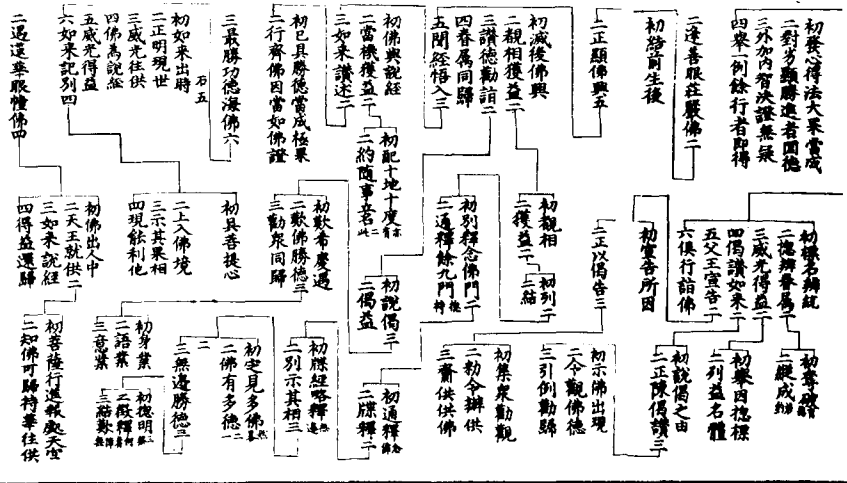 初發心得法大果當成
二對劣顯勝進者圓德
三外加內智決證無疑
四舉一例餘行者即得
二逢善眼莊嚴佛二
初結前生後
二正顯佛興五
初滅後佛興
二覩相獲益二
三讚德勸詣二
四眷屬同歸
五聞經悟入三
初佛興說經
二當機獲益二
三如來讚述二
初已具勝德當成極果
二行齊佛因當如佛證
三最勝功德海佛六
石五
初如來出時
二正明現世
三威光往供
四佛為說經
五威光得益
六如來記別四
二遇蓮華眼幢佛四
初標名辨統
二總辨眷屬二
三威光得益二
四偈讚如來二
五父王宣告二
六俱行詣佛
初宣告所因
二正以偈告三
初觀相
二獲益二
初列二
二結
初別釋念佛門二
二通釋餘九門
初說偈三
二偈益
初配十地十度
二約隨事立名
初歎希慶遇
二歎佛勝德三
三勸眾同歸
初具菩提心
二上入佛境
三示其果相
四現能利他
初佛出人中
二天王就供二
三如來說經
四得益還歸
初舉因總標
二列益名體
初說偈之由
二正陳偈讚三
初示佛出現
二令觀佛德
三引例勸歸
初集眾勸觀
二勅令辦供
三齎供供佛
初通釋
二牒釋二
初牒經略釋
二別示其相三
初定見多佛
二佛有多德
三無邊勝德三
二
初身業
二語業
三意業
初總明
二徵釋
三結歎
初菩薩行進報處天宮
二知佛可歸持華往供